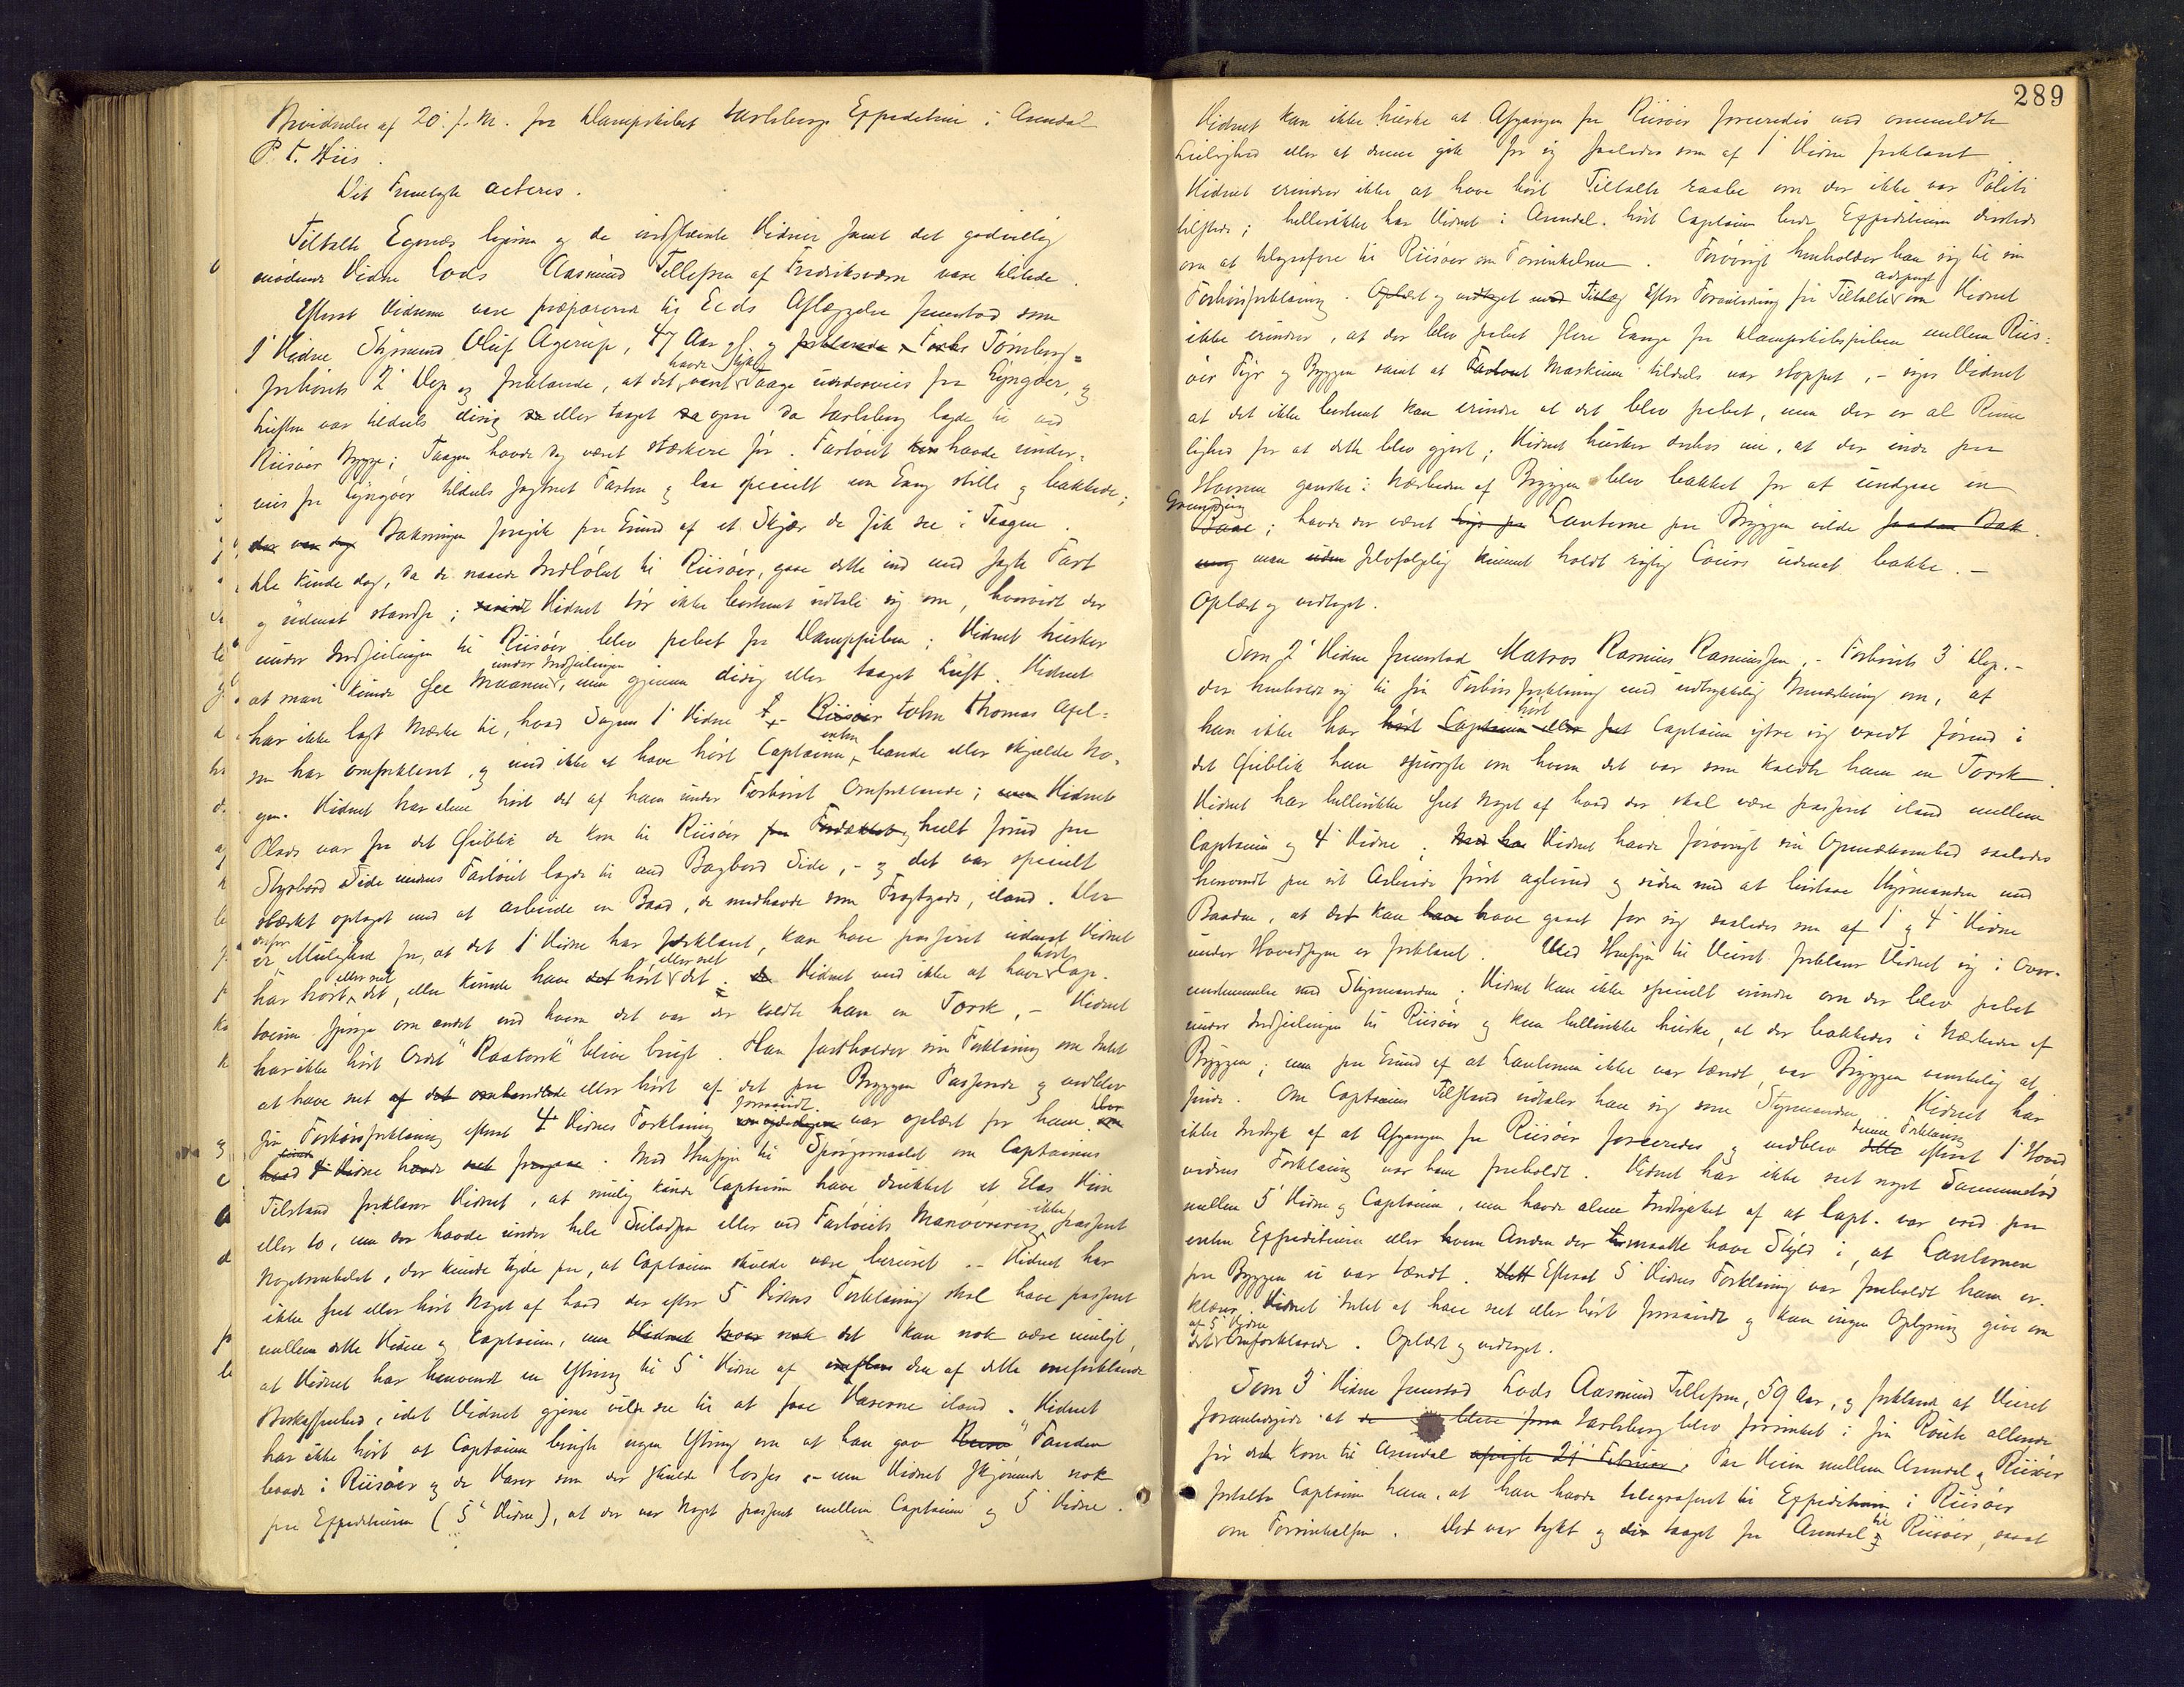 Bevidnelse af 20. f. M. fra Dampskibet Jarlsbergs Expedition i Arendal
P. T. Hiis.
Det Fremlagte acteres.
Tiltalte Egenæs ligesom og de indstævnte Vidner samt det godvillig
mødende Vidne Lods Aasmund Tellefsen af Fredriksværn vare tilstede.
Efterat Vidnerne vare præparerede til Eeds Aflæggelse fremstod som
1ᵉ Vidne Styrmand Oluf Agerup, 47 Aar gl. og forklarede
forhørets 2ᵈ Dep og forklarede, at det havde været tykt Taage underveis fra Lyngøer, og
Luften var tildels disig eller taaget da Jarlsberg lagde til ved
Riisøer Brygge; Taagen havde dog været stærkere før. Fartøiet havde under-
veis fra Lyngøer tildels sagtnet Farten og laa specielt en Gang stille og bakkede;
Bakningen foregik paa Grund af et Skjær de fik see i Taagen.
De kunde dog, da de naaede Indløbet til Riisøer, gaae dette ind med sagte Fart
og uden at standse; Vidnet tør ikke bestemt udtale sig om, hvorvidt der
under Indseilingen til Riisøer blev pebet fra Damppiben; Vidnet husker
at man kunde see Maanen under Indseilingen, men gjennem disig eller taaget Luft. Vidnet
har ikke lagt Mærke til, hvad Sagens 1ᵉ Vidne John Thomas Axel-
sen har omforklaret, og veed ikke at have hørt Captainen enten bande eller skjælde No-
gen. Vidnet har alene hørt det af ham under Forhøret Omforklarede; Vidnets
Plads var fra det Øieblik de kom til Riisøer heelt forud paa
Styrbord Side medens Fartøiet lagde til med Bagbord Side, – og det var specielt
stærkt optaget med at arbeide en Baad, de medhavde som Fragtgods, iland. Der
er derfor Mulighed for, at det 1ᵉ Vidne har forklaret, kan have passeret uden at Vidnet
har hørt eller seet det, eller kunde have hørt eller seet det. Vidnet veed ikke at have hørt Cap-
tainen spørge om andet end hvem det var der kaldte ham en Torsk, – Vidnet
har ikke hørt Ordet "Raatorsk" blive brugt. Han fastholder sin Forklaring om Intet
at have seet eller hørt af det paa Bryggen Passerede og vedblev
sin Forhørsforklaring efterat 4ᵈᵉ Vidnes Forklaring forsaavidt var oplæst for ham.
Med Hensyn til Spørgsmaalet om Captainens
Tilstand forklarer Vidnet, at mulig kunde Captainen have drukket et Glas Viin
eller to, men der havde under hele Seiladsen eller ved Fartøiets Manøvrering ikke passeret
Nogetsomhelst, der kunde tyde paa, at Captainen skulde være beruset. – Vidnet har
ikke seet eller hørt Noget af hvad der efter 5ᵗᵉ Vidnes Forklaring skal have passeret
mellem dette Vidne og Captainen, men det kan nok være muligt,
at Vidnet har henvendt en Ytring til 5ᵗᵉ Vidne af den af dette omforklarede
Beskaffenhed, idet Vidnet gjerne vilde see til at faae Varerne iland. Vidnet
har ikke hørt at Captainen brugte nogen Ytring om at han gav "Fanden
baade i Riisøer og de Varer som der skulde losses – men Vidnet skjønnede nok
paa Expeditøren (5ᵗᵉ Vidne), at der var Noget passeret mellem Captainen og 5ᵗᵉ Vidne.
289
Vidnet kan ikke huske at Afgangen fra Riisøer forceredes ved ommeldte
Leilighed eller at denne gik for sig saaledes som af 1ᵉ Vidne forklaret.
Vidnet erindrer ikke at have hørt Tiltalte raabe om der ikke var Politi
tilstede; hellerikke har Vidnet i Arendal hørt Captainen bede Expeditionen dersteds
om at telegrafere til Riisøer om Forsinkelsen. Forøvrigt henholder han sig til sin
Forhørsforklaring. Efter Foranledning fra Tiltalte adspurgt om Vidnet
ikke erindrer, at der blev pebet flere Gange fra Dampskibspiben mellem Riis-
øer Fyr og Bryggen samt at Maskinen tildels var stoppet, – siger Vidnet
at det ikke bestemt kan erindre at det blev pebet, men der er al Rime-
lighed for at dette blev gjort; Vidnet husker derhos nu, at der inde paa
Havnen ganske i Nærheden af Bryggen blev bakket for at undgaae en
Grunding; havde der været Lanterne paa Bryggen vilde
man selvfølgelig kunnet holdt rigtig Cours uden at bakke. –
Oplæst og vedtaget.
Som 2ᵈ Vidne fremstod Matros Rasmus Rasmussen. – Forhørets 3ᵈ Dep. –
der henholdt sig til sin Forhørsforklaring med udtrykkelig Bemærkning om, at
han ikke har hørt Captainen ytre sig vredt førend i
det Øieblik han spurgte om hvem det var som kaldte ham en Torsk.
Vidnet har hellerikke seet noget af hvad der skal være passeret iland mellem
Captainen og 4ᵈᵉ Vidne. Vidnet havde forøvrigt sin Opmærksomhed saaledes
henvendt paa sit Arbeide først agterud og siden med at bistaae Styrmanden med
Baaden, at det kan have gaaet for sig saaledes som af 1ᵉ og 4ᵈᵉ Vidne
under Hovedsagen er forklaret. Med Hensyn til Veiret forklarer Vidnet sig i Over-
eensstemmelse med Styrmanden. Vidnet kan ikke specielt erindre om der blev pebet
under Indseilingen til Riisøer og kan hellerikke huske, at der bakkedes i Nærheden af
Bryggen; men paa Grund af at Lanternen ikke var tændt, var Bryggen vanskelig at
finde. Om Captainens Tilstand udtaler han sig som Styrmanden. Vidnet har
ikke Indtryk af at Afgangen fra Riisøer forceredes og vedblev denne Forklaring efterat 1ᵉ Hoved
vidnes Forklaring var ham foreholdt. Vidnet har ikke seet noget Sammenstød
mellem 5ᵗᵉ Vidne og Captainen, men havde alene Indtrykket af at Capt. var vred paa
enten Expeditionen eller hvem Anden der maatte have Skyld i, at Lanternen
paa Bryggen ei var tændt. Efterat 5ᵗᵉ Vidnes Forklaring var foreholdt ham er-
klærer Vidnet Intet at have seet eller hørt forsaavidt og kan ingen Oplysning give om
det af 5ᵗᵉ Vidne Omforklarede. Oplæst og vedtaget.
Som 3ᵈ Vidne fremstod Lods Aasmund Tellefsen, 59 Aar, og forklarede at Veiret
foranledigede at Jarlsberg blev forsinket i sin Route allerede
før den kom til Arendal. Paa Veien mellem Arendal og Riisøer
fortalte Captainen ham, at han havde telegraferet til Expeditionen i Riisøer
om Forsinkelsen. Det var tykt og taaget fra Arendal til Riisøer, saaat